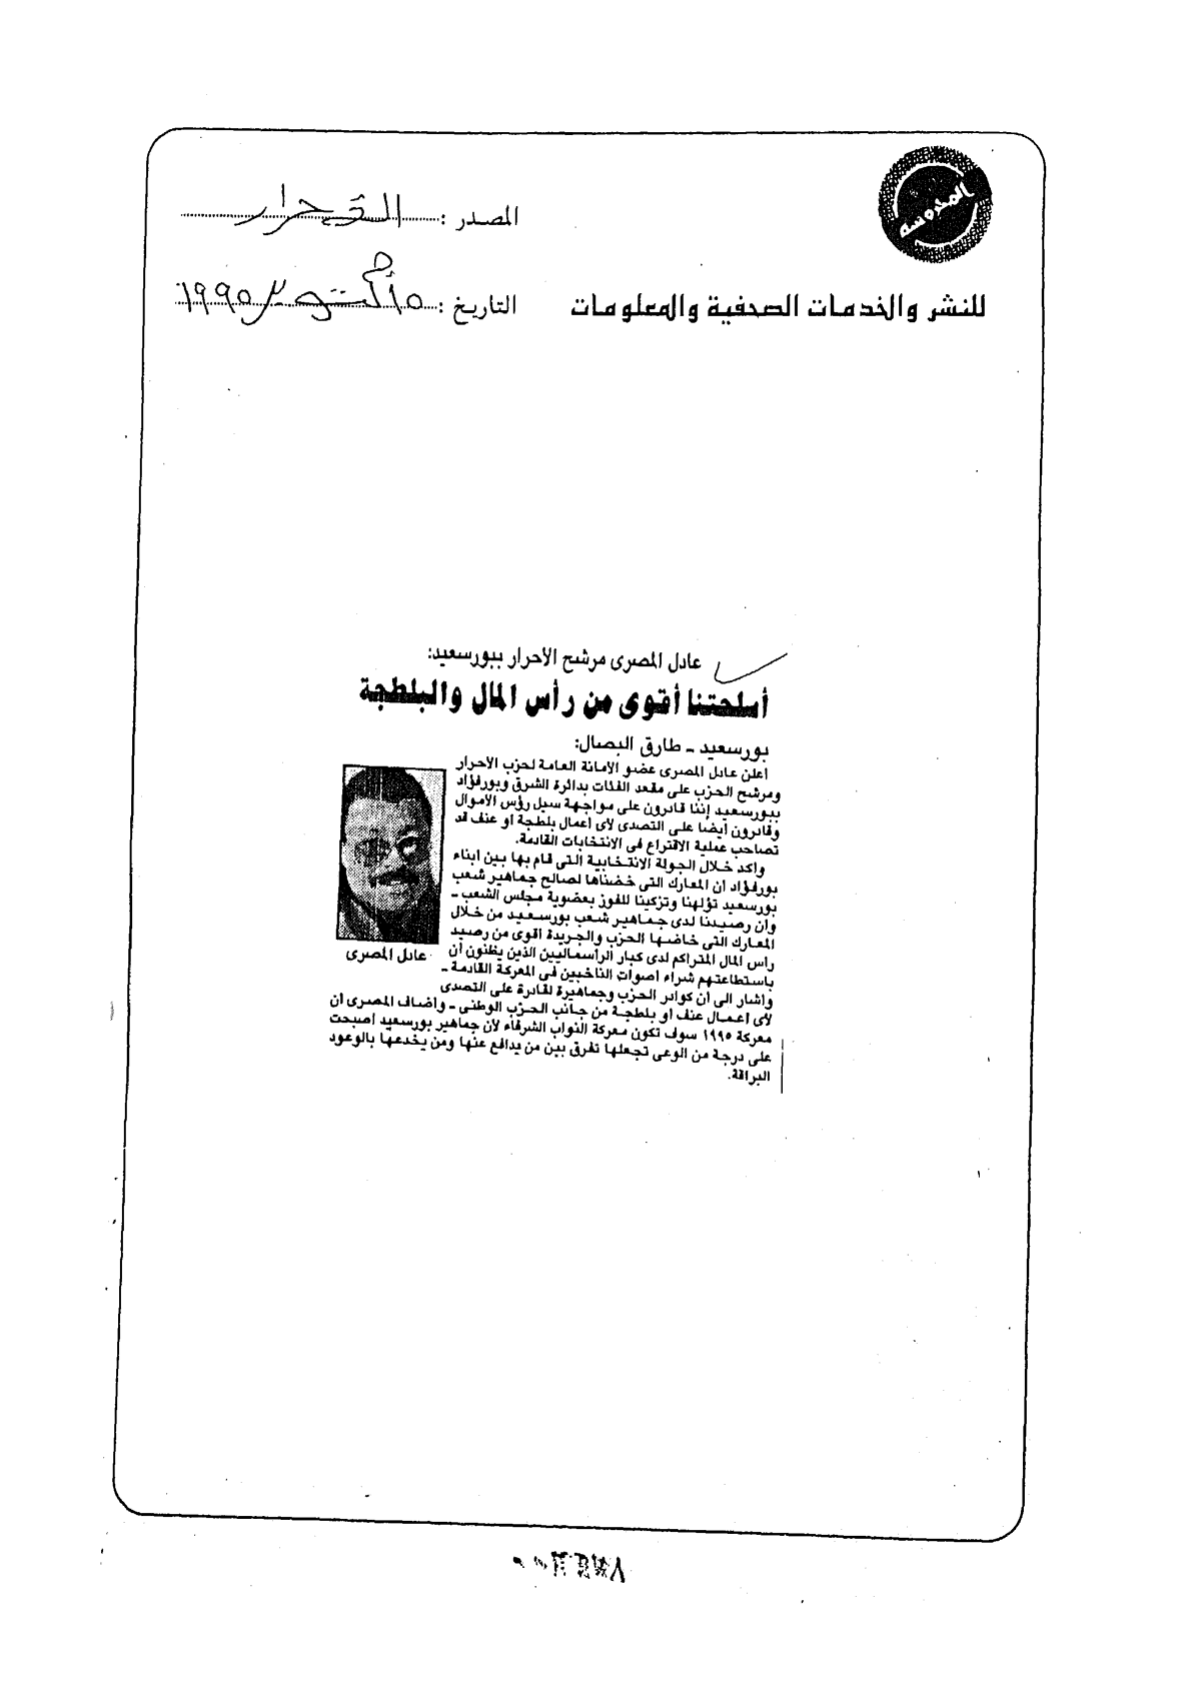 المدرسة
المصدر : الأحرار
للنشر والخدمات الصحفية والمعلومات
التاريخ : ١٥ أكتوبر ١٩٩٥
عادل المصرى مرشح الأحرار ببورسعيد:
أسلحتنا أقوى من رأس المال والبلطجة
بورسعيد - طارق البصال:
اعلن عادل المصرى عضو الامانة العامة لحزب الاحرار
ومرشح الحزب على مقعد الفئات بدائرة الشرق وبورفؤاد
ببورسعيد إننا قادرون على مواجهة سيل رؤس الأموال
وقادرون أيضا على التصدى لأى أعمال بلطجة او عنف قد
تصاحب عملية الاقتراع فى الانتخابات القادمة.
واكد خلال الجولة الانتخابية التى قام بها بين ابناء
بورفؤاد ان المعارك التى خضناها لصالح جماهير شعب
بورسعيد تؤلهنا وتزكينا للفوز بعضوية مجلس الشعب -
وأن رصيدنا لدى جماهير شعب بورسعيد من خلال
المعارك التى خاضها الحزب والجريدة اقوى من رصيد
رأس المال المتراكم لدى كبار الرأسماليين الذين يظنون أن
باستطاعتهم شراء اصوات الناخبين فى المعركة القادمة -
واشار الى ان كوادر الحزب وجماهيرة لقادرة على التصدى
لأى اعمال عنف او بلطجة من جانب الحزب الوطنى - واضاف المصرى ان
معركة ١٩٩٥ سوف تكون معركة النواب الشرفاء لأن جماهير بورسعيد اصبحت
على درجة من الوعى تجعلها تفرق بين من يدافع عنها ومن يخدعها بالوعود
البراقة.
عادل المصرى